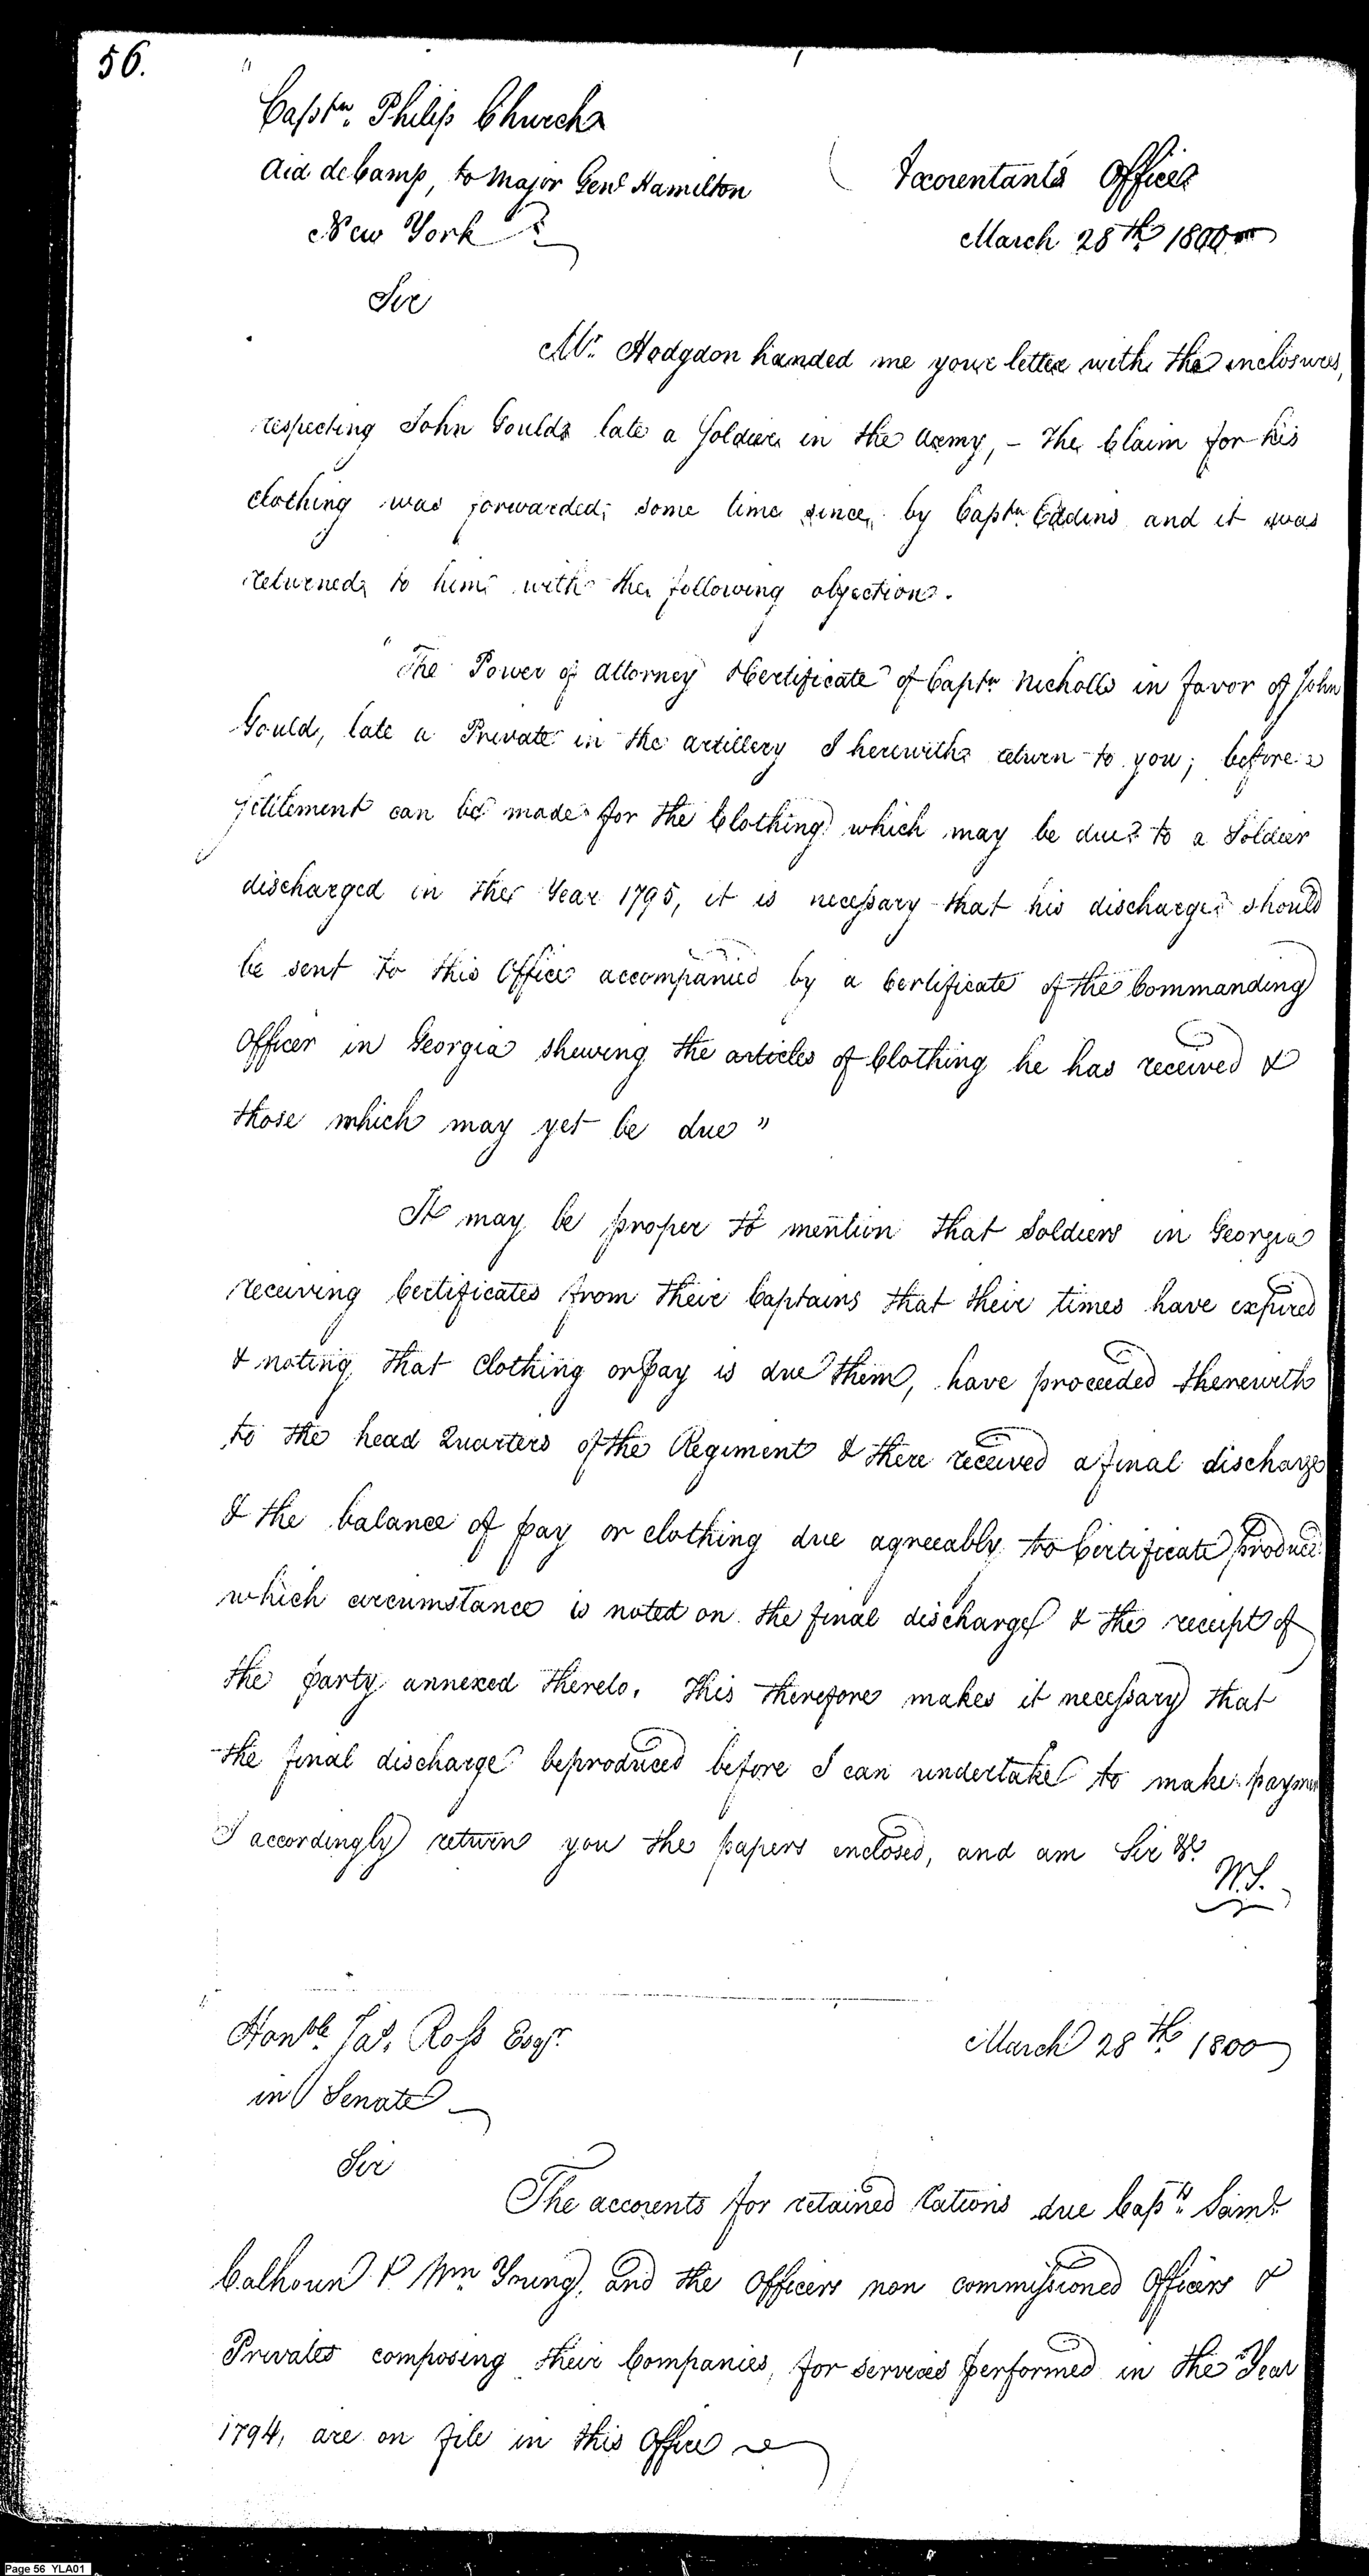 56.
Captn. Philip Church
Aid de Camp, to Major Genl Hamilton
Accountants Office
New York
March 28th 1800
Sir
Mr. Hodgdon handed me your letter with the inclosures,
respecting John Gould late a Soldier in the Army, - The Claim for his
clothing was forwarded, some time since, by Captn. Eddins and it was
returned to him with the following objection.
"The Power of Attorney & Certificate of Captn Nicholls in favor of John
Gould, late a Private in the artillery I herewith return to you; before a
settlement can be made for the Clothing which may be due to a Soldier
discharged in the Year 1795, it is necessary that his discharge should
be sent to this Office accompanied by a Certificate of the Commanding
Officer in Georgia shewing the articles of Clothing he has received &
those which may yet be due"
It may be proper to mention that Soldiers in Georgia
receiving Certificates from their Captains that their times have expired
& noting that Clothing or pay is due them, have proceeded therewith
to the head Quarters of the Regiment & there received a final discharge
& the balance of pay or clothing due agreeably to Certificate produced
which circumstance is noted on the final discharge & the receipt of
the party annexed thereto. This therefore makes it necessary that
the final discharge be produced before I can undertake to make payment
I accordingly return you the papers enclosed, and am Sir &c.
W.S.
Honble. Jas. Ross Esqr.
March 28th 1800
in Senate
Sir
The accounts for retained rations due Capts. Saml
Calhoun & Wm Young, and the Officers non commissioned Officers &
Privates composing their Companies, for services performed in the Year
1794, are on file in this Office
Page 56 YLA01